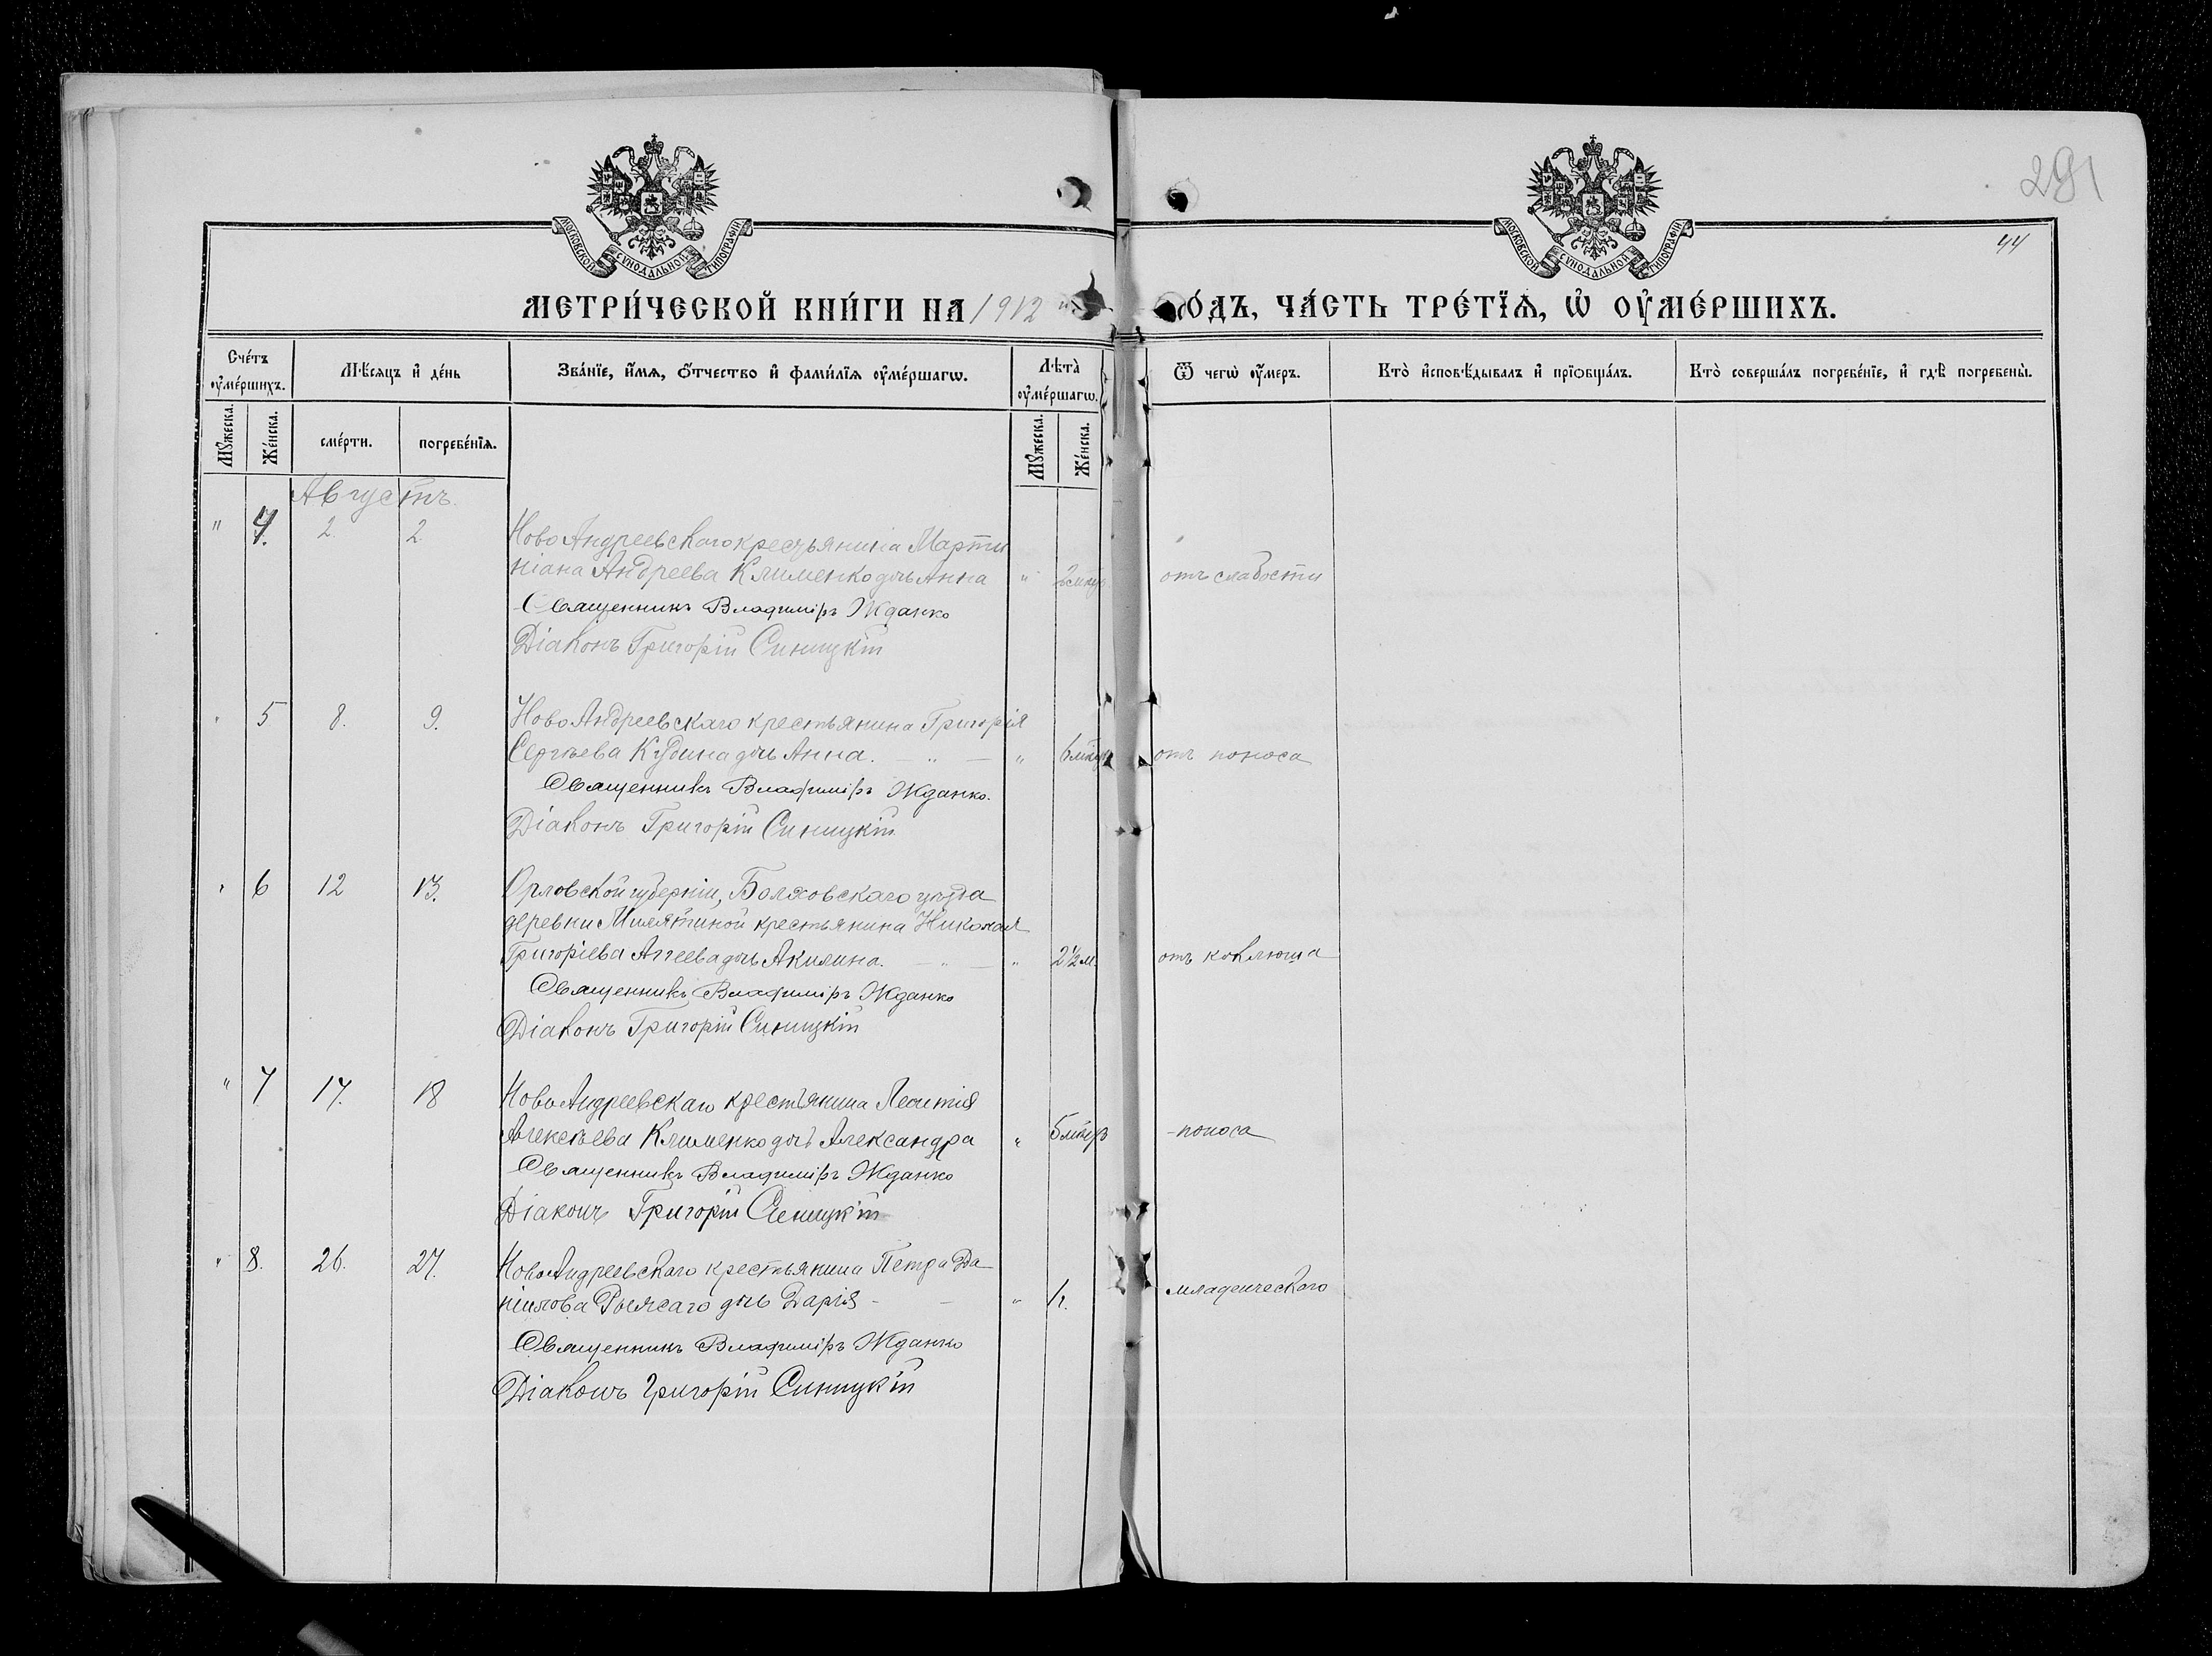 291
44
МОСКОВСКОЙ СѴНОДАЛЬНОЙ ТИПОГРАФІИ
МОСКОВСКОЙ СѴНОДАЛЬНОЙ ТИПОГРАФІИ
МЕТРИ́ЧЕСКОЙ КНИ́ГИ НА 1912 ГО́ДЪ, ЧА́СТЬ ТРЕ́ТЇѦ, Ѡ҆ ОУ҆МЕ́РШИХЪ.
Сче́тъ оу҆ме́ршихъ.
Мꙋ́жеска.
Же́нска.
Мѣ́сяцъ и҆ де́нь
сме́рти.
погребе́нїѧ.
Зва́нїе, и҆́мѧ, ѻ҆́тчество и҆ фами́лїѧ оу҆ме́ршагѡ.
Лѣ́та̀ оу҆ме́ршагѡ.
Мꙋ́жеска.
Же́нска.
Ѿ чегѡ̀ оу҆́меръ.
Кто̀ и҆сповѣ́дывалъ и҆ прїѻбща́лъ.
Кто̀ соверша́лъ погребе́нїе, и҆ гдѣ̀ погребены̀.
Августъ.
" 4. 2. 2. Ново Андреевскаго крестьянина Марти
ніана Андреева Клименко дочь Анна " отъ слабости
Священникъ Владиміръ Жданко
Діаконъ Григорій Синицкій
" 5 8. 9. Ново Андреевскаго крестьянина Григорія
Сергѣева Кудина дочь Анна. — " — " отъ поноса
Священникъ Владиміръ Жданко.
Діаконъ Григорій Синицкій
" 6 12 13. Орловской губерніи, Болховскаго уѣзда
деревни Милятиной крестьянина Николая
Григоріева Агеева дочь Акилина. — " — " 2½ м. отъ коклюша
Священникъ Владиміръ Жданко
Діаконъ Григорій Синицкій
" 7 17. 18 Ново Андреевскаго крестьянина Леонтія
Алексѣева Клименко дочь Александра " поноса
Священникъ Владиміръ Жданко
Діаконъ Григорій Синицкій
" 8. 26. 27. Ново Андреевскаго крестьянина Петра Да
ніилова дочь Дарія - — " младенческаго
Священникъ Владиміръ Жданко
Діаконъ Григорій Синицкій